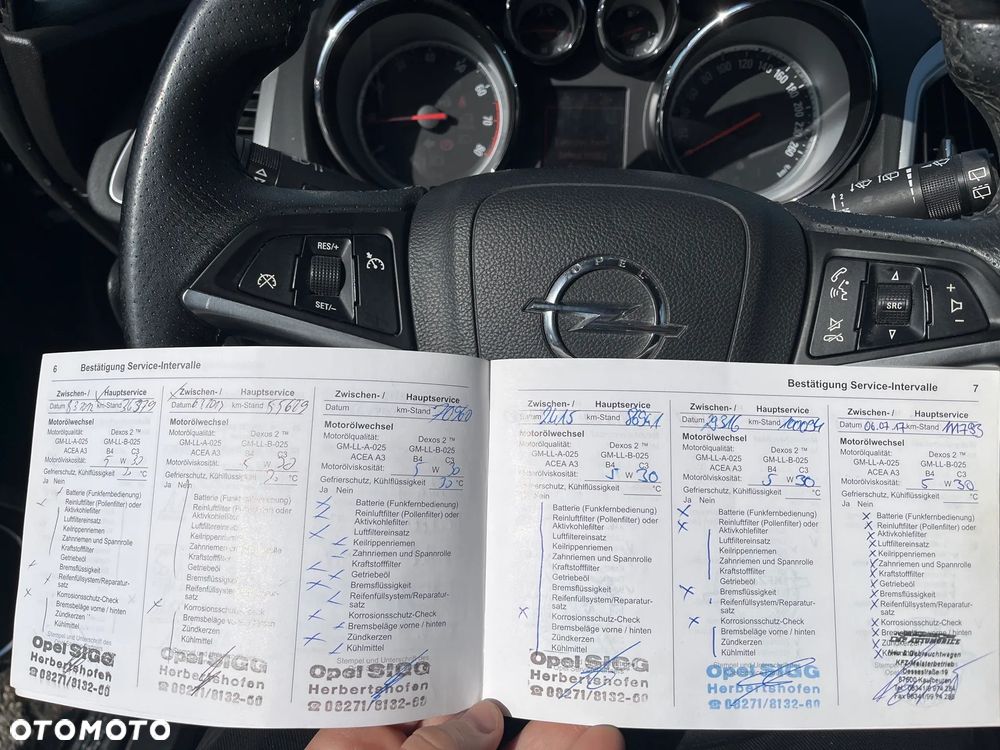 50
60
70
80
80
100
120
140
160
180
200
220
260
RES/+
SET/−
OPEL
SRC
+
−
6 Bestätigung Service-Intervalle
Zwischen-/ Hauptservice
Datum km-Stand
Motorölwechsel
Motorölqualität: Dexos 2 ™
GM-LL-A-025 GM-LL-B-025
ACEA A3 B4 C3
Motorölviskosität: 5 W 30
Gefrierschutz, Kühlflüssigkeit °C
Ja Nein
Batterie (Funkfernbedienung)
Reinluftfilter (Pollenfilter) oder
Aktivkohlefilter
Luftfiltereinsatz
Keilrippenriemen
Zahnriemen und Spannrolle
Kraftstofffilter
Getriebeöl
Bremsflüssigkeit
Reifenfüllsystem/Reparatur-
satz
Korrosionsschutz-Check
Bremsbeläge vorne / hinten
Zündkerzen
Kühlmittel
Stempel und Unterschrift des
Opel SIGG
Herbertshofen
☎ 08271/8132-60
Zwischen-/ Hauptservice
Datum km-Stand 55629
Motorölwechsel
Motorölqualität: Dexos 2 ™
GM-LL-A-025 GM-LL-B-025
ACEA A3 B4 C3
Motorölviskosität: 5 W 30
Gefrierschutz, Kühlflüssigkeit °C
Ja Nein
Batterie (Funkfernbedienung)
Reinluftfilter (Pollenfilter) oder
Aktivkohlefilter
Luftfiltereinsatz
Keilrippenriemen
Zahnriemen und Spannrolle
Kraftstofffilter
Getriebeöl
Bremsflüssigkeit
Reifenfüllsystem/Reparatur-
satz
Korrosionsschutz-Check
Bremsbeläge vorne / hinten
Zündkerzen
Kühlmittel
Opel SIGG
Herbertshofen
☎ 08271/8132-60
Zwischen-/ Hauptservice
Datum km-Stand 70960
Motorölwechsel
Motorölqualität: Dexos 2 ™
GM-LL-A-025 GM-LL-B-025
ACEA A3 B4 C3
Motorölviskosität: 5 W 30
Gefrierschutz, Kühlflüssigkeit 30 °C
Ja Nein
Batterie (Funkfernbedienung)
Reinluftfilter (Pollenfilter) oder
Aktivkohlefilter
Luftfiltereinsatz
Keilrippenriemen
Zahnriemen und Spannrolle
Kraftstofffilter
Getriebeöl
Bremsflüssigkeit
Reifenfüllsystem/Reparatur-
satz
Korrosionsschutz-Check
Bremsbeläge vorne / hinten
Zündkerzen
Kühlmittel
Stempel und Unterschrift
Opel SIGG
Herbertshofen
☎ 08271/8132-60
Bestätigung Service-Intervalle 7
Zwischen-/ Hauptservice
Datum km-Stand 86941
Motorölwechsel
Motorölqualität: Dexos 2 ™
GM-LL-A-025 GM-LL-B-025
ACEA A3 B4 C3
Motorölviskosität: 5 W 30
Gefrierschutz, Kühlflüssigkeit °C
Ja Nein
Batterie (Funkfernbedienung)
Reinluftfilter (Pollenfilter) oder
Aktivkohlefilter
Luftfiltereinsatz
Keilrippenriemen
Zahnriemen und Spannrolle
Kraftstofffilter
Getriebeöl
Bremsflüssigkeit
Reifenfüllsystem/Reparatur-
satz
Korrosionsschutz-Check
Bremsbeläge vorne / hinten
Zündkerzen
Kühlmittel
Opel SIGG
Herbertshofen
☎ 08271/8132-60
Zwischen-/ Hauptservice
Datum 29.3.16 km-Stand
Motorölwechsel
Motorölqualität: Dexos 2 ™
GM-LL-A-025 GM-LL-B-025
ACEA A3 B4 C3
Motorölviskosität: 5 W 30
Gefrierschutz, Kühlflüssigkeit °C
Ja Nein
Batterie (Funkfernbedienung)
Reinluftfilter (Pollenfilter) oder
Aktivkohlefilter
Luftfiltereinsatz
Keilrippenriemen
Zahnriemen und Spannrolle
Kraftstofffilter
Getriebeöl
Bremsflüssigkeit
Reifenfüllsystem/Reparatur-
satz
Korrosionsschutz-Check
Bremsbeläge vorne / hinten
Zündkerzen
Kühlmittel
Opel SIGG
Herbertshofen
☎ 08271/8132-60
Zwischen-/ Hauptservice
Datum 06.07.17 km-Stand 111793
Motorölwechsel
Motorölqualität: Dexos 2 ™
GM-LL-A-025 GM-LL-B-025
ACEA A3 B4 C3
Motorölviskosität: 5 W 30
Gefrierschutz, Kühlflüssigkeit °C
Ja Nein
Batterie (Funkfernbedienung)
Reinluftfilter (Pollenfilter) oder
Aktivkohlefilter
Luftfiltereinsatz
Keilrippenriemen
Zahnriemen und Spannrolle
Kraftstofffilter
Getriebeöl
Bremsflüssigkeit
Reifenfüllsystem/Reparatur-
satz
Korrosionsschutz-Check
Bremsbeläge vorne / hinten
Zündkerzen
AUTOMOBILE
Neu & Gebrauchtwagen
KFZ-Meisterbetrieb
87600 Kaufbeuren
OTOMOTO